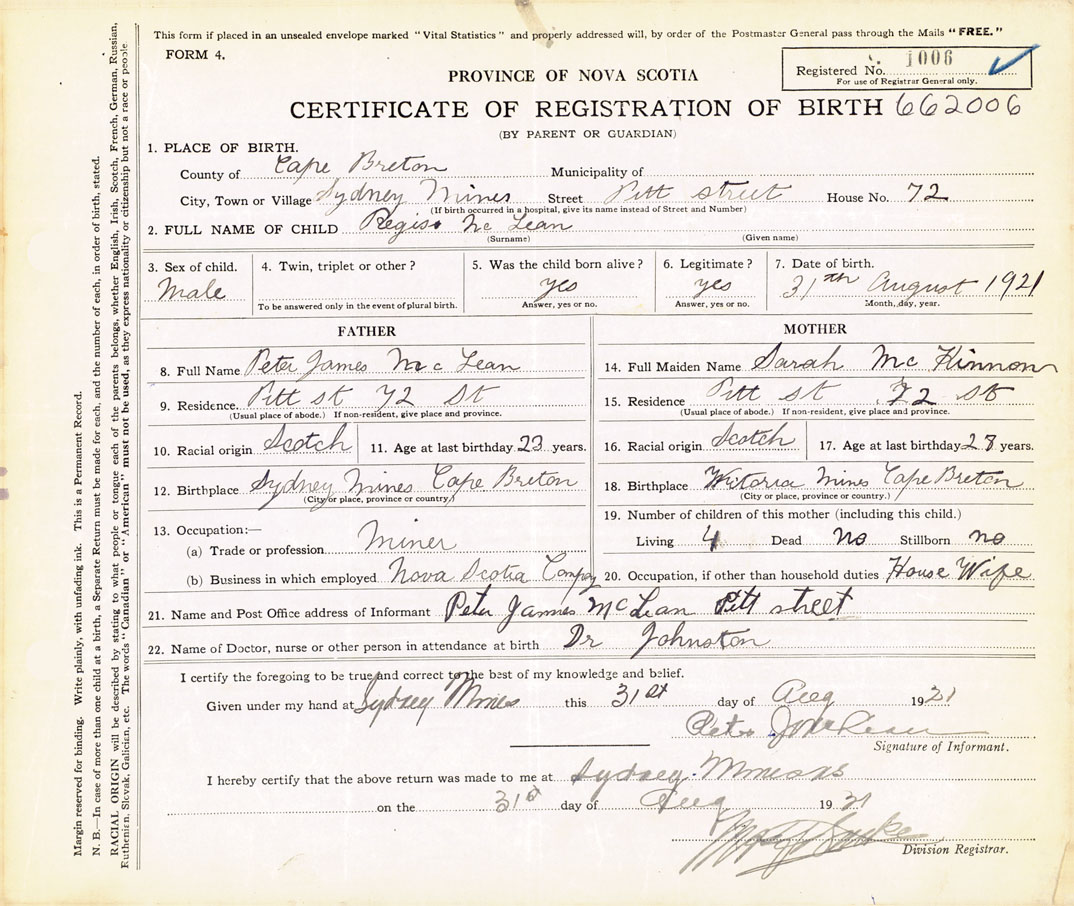 This form if placed in an unsealed envelope marked "Vital Statistics" and properly addressed will, by order of the Postmaster General pass through the Mails "FREE."
FORM 4.
Registered No. 1006
For use of Registrar General only.
PROVINCE OF NOVA SCOTIA
CERTIFICATE OF REGISTRATION OF BIRTH 662006
(BY PARENT OR GUARDIAN)
1. PLACE OF BIRTH.
County of Cape Breton Municipality of
City, Town or Village Sydney Mines Street Pitt street House No. 72
(If birth occurred in a hospital, give its name instead of Street and Number)
2. FULL NAME OF CHILD Regis Mc Lean
(Surname) (Given name)
3. Sex of child. 4. Twin, triplet or other? 5. Was the child born alive? 6. Legitimate? 7. Date of birth.
Male yes yes 31th August 1921
To be answered only in the event of plural birth. Answer, yes or no. Answer, yes or no. Month, day, year.
FATHER
8. Full Name Peter James Mc Lean
9. Residence. Pitt st 72 St
(Usual place of abode.) If non-resident, give place and province.
10. Racial origin Scotch 11. Age at last birthday 23 years.
12. Birthplace Sydney Mines Cape Breton
(City or place, province or country.)
13. Occupation:—
(a) Trade or profession Miner
(b) Business in which employed Nova Scotia Compay
MOTHER
14. Full Maiden Name Sarah Mc Kinnon
15. Residence Pitt st 72 St
(Usual place of abode.) If non-resident, give place and province.
16. Racial origin Scotch 17. Age at last birthday years.
18. Birthplace Mines Cape Breton
(City or place, province or country.)
19. Number of children of this mother (including this child.)
Living 4 Dead No Stillborn no
20. Occupation, if other than household duties House Wife
21. Name and Post Office address of Informant Peter James McLean Pitt street
22. Name of Doctor, nurse or other person in attendance at birth Dr Johnston
I certify the foregoing to be true and correct to the best of my knowledge and belief.
Given under my hand at Sydney Mines this 31st day of Aug 1921
Peter J McLean
Signature of Informant.
I hereby certify that the above return was made to me at Sydney Mines
on the 31st day of Aug 19
Division Registrar.
Margin reserved for binding. Write plainly, with unfading ink. This is a Permanent Record.
N. B.—In case of more than one child at a birth, a Separate Return must be made for each, and the number of each, in order of birth, stated.
RACIAL ORIGIN will be described by stating to what people or tongue each of the parents belongs, whether English, Irish, Scotch, French, German, Russian,
Ruthenian, Slovak, Galician, etc. The words "Canadian" or "American" must not be used, as they express nationality or citizenship but not a race or people